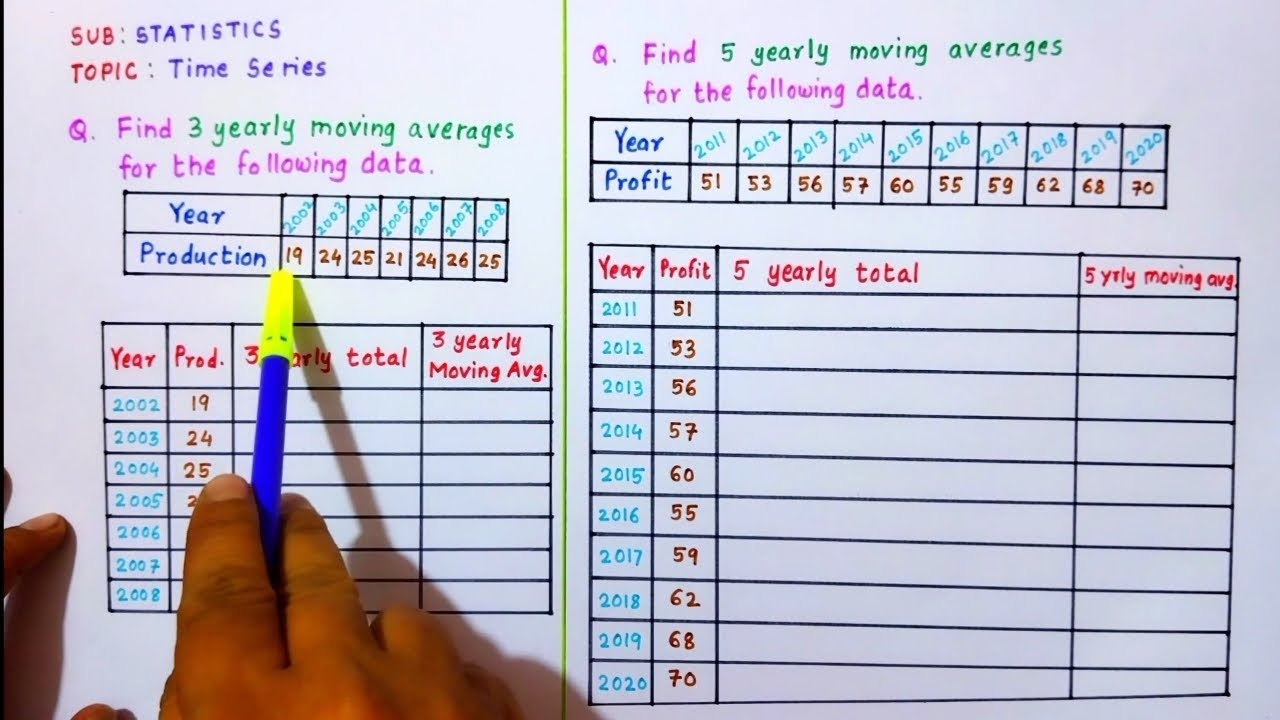 SUB: STATISTICS
TOPIC: Time Series
Q. Find 3 yearly moving averages
for the following data.
Year 2002 2003 2004 2005 2006 2007 2008
Production 19 24 25 21 24 26 25
Year Prod. 3 total 3 yearly Moving Avg.
2002 19
2003 24
2004 25
2005
2006
2007
2008
Q. Find 5 yearly moving averages
for the following data.
Year 2011 2012 2013 2014 2015 2016 2017 2018 2019 2020
Profit 51 53 56 57 60 55 59 62 68 70
Year Profit 5 yearly total 5 yrly moving avg.
2011 51
2012 53
2013 56
2014 57
2015 60
2016 55
2017 59
2018 62
2019 68
2020 70